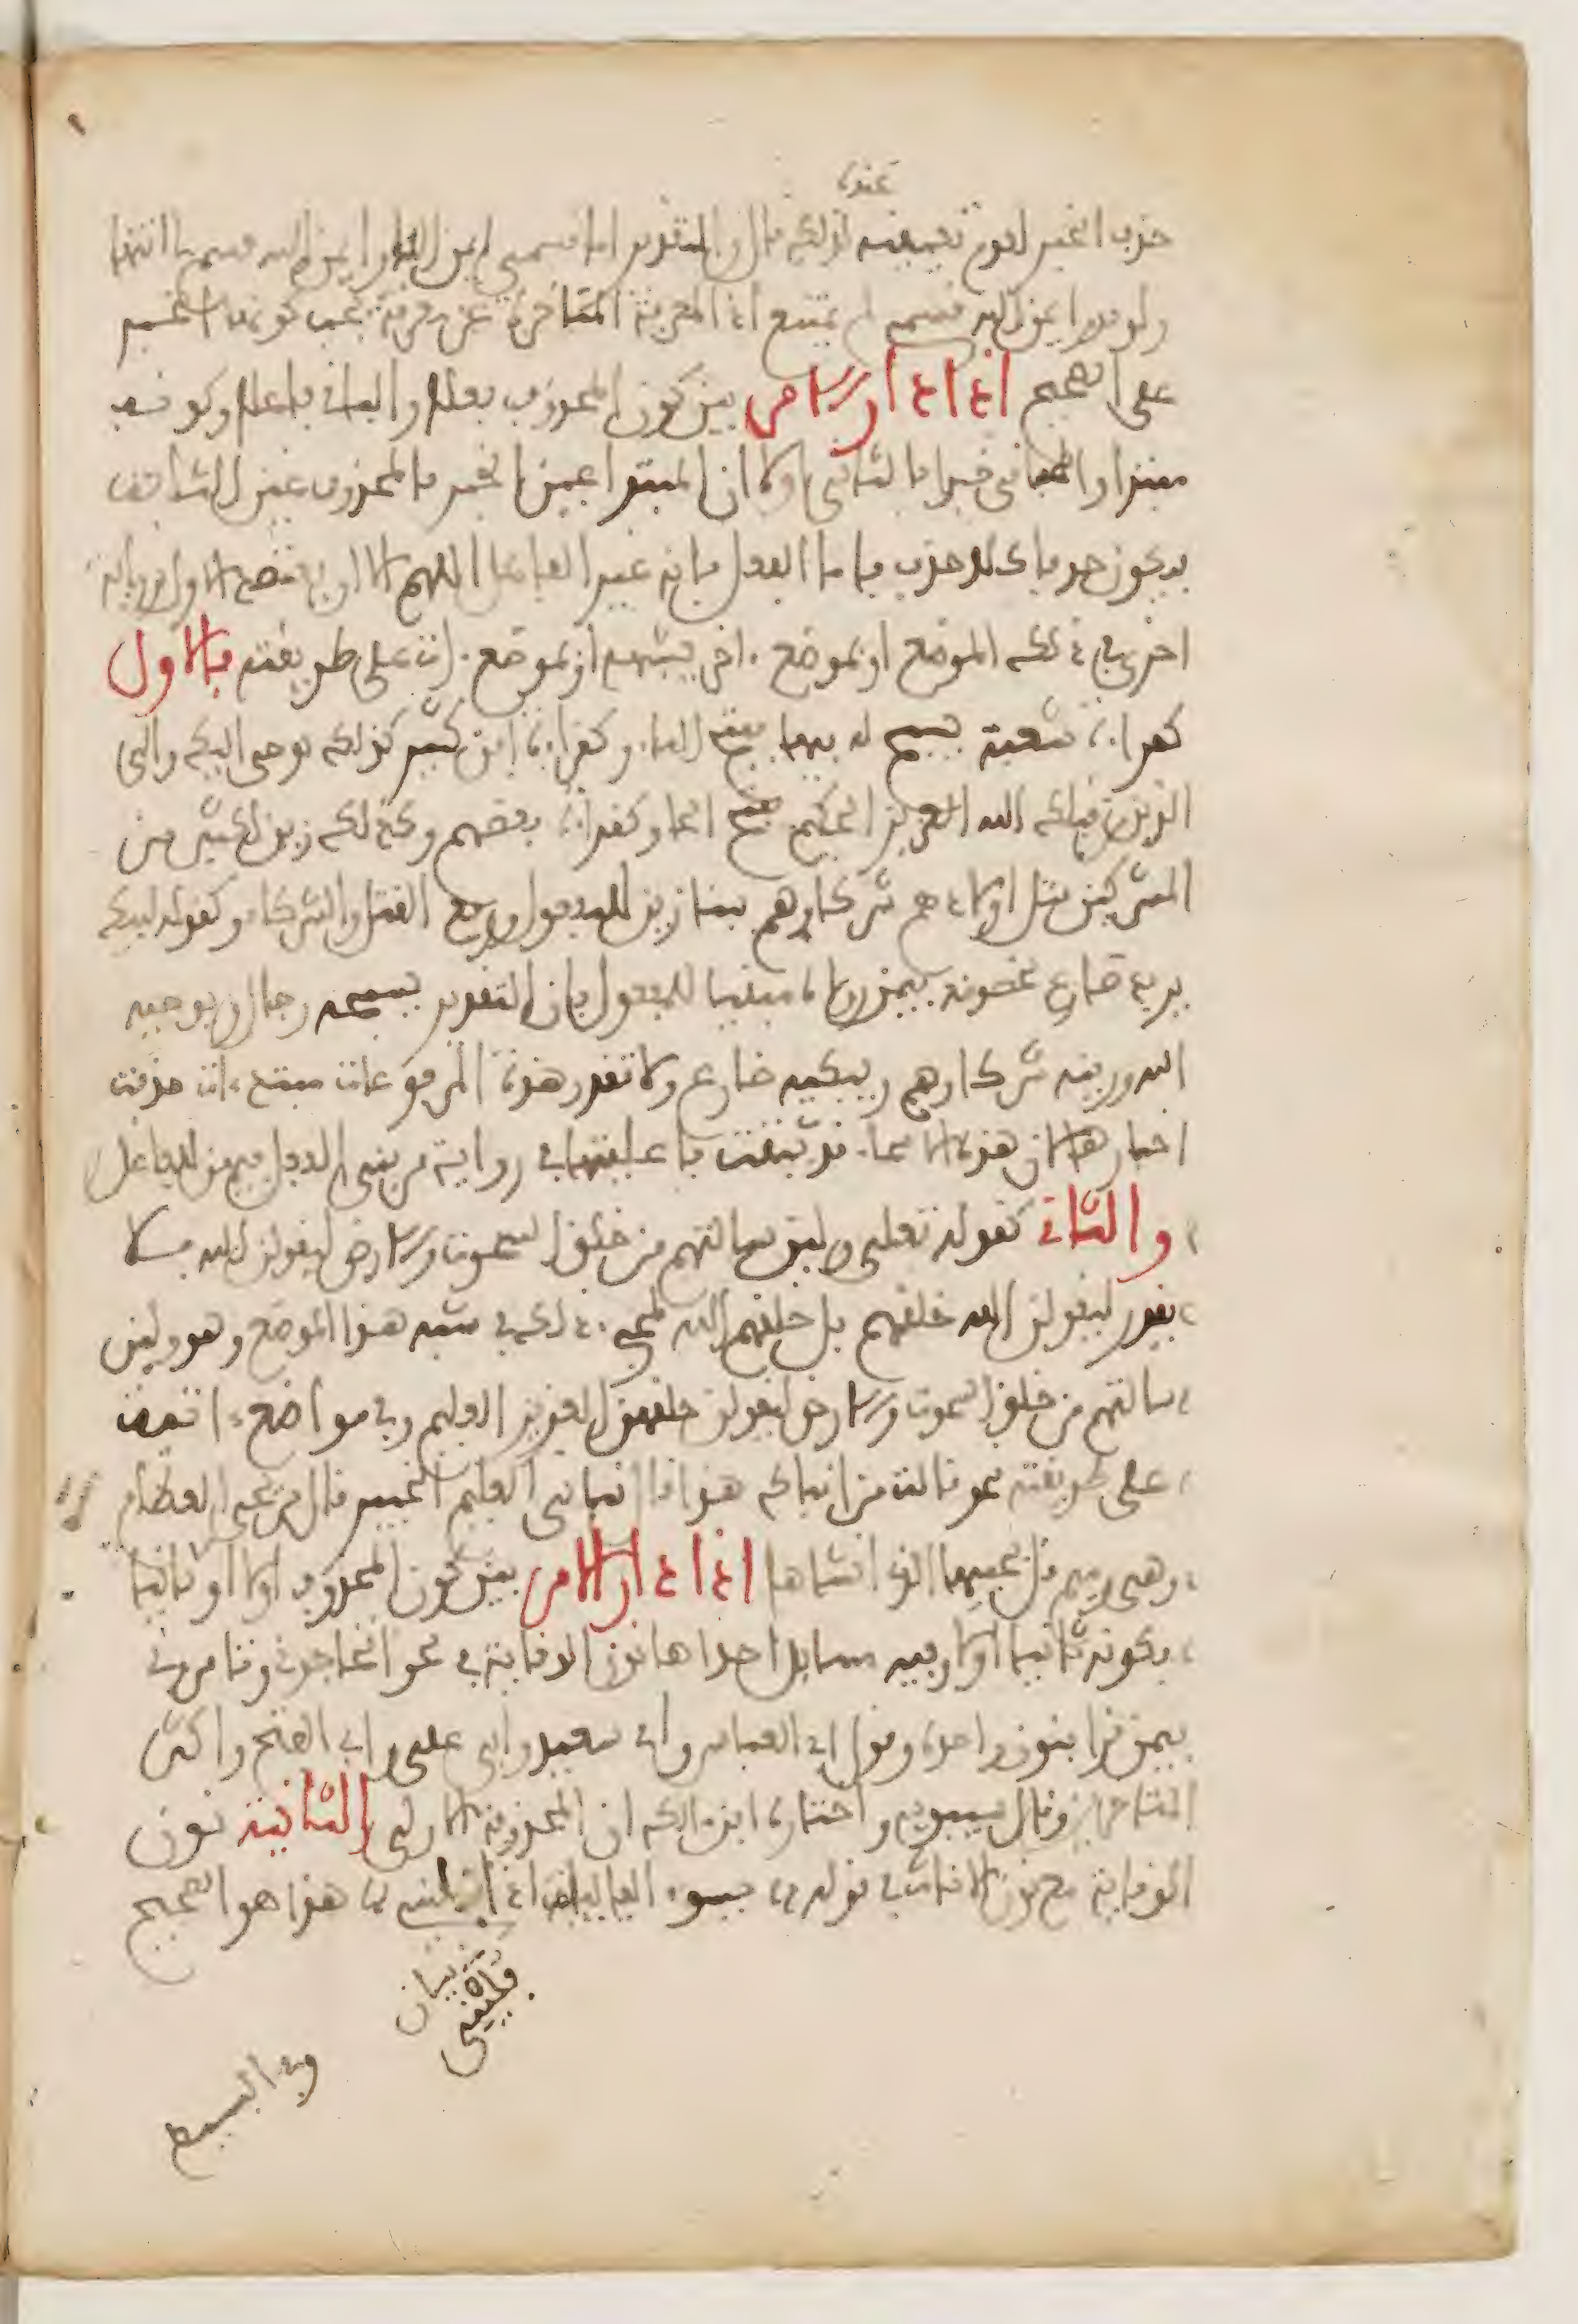 عنده
حذف الخبر لعدم تعيينه لذلك قال والتقدير اما قسمي ايمن الله او ايمن الله قسم لي انتهى
ولو قدر ايمن الله قسمي لم يمتنع اذ المعرفة المتاخرة عن معرفة يجب كونها الخبر
على الصحيح اذا دار الامر بين كون المحذوف فعلا والباقي فاعلا وكونه
مبتدا والباقي خبرا فالثاني اولا لان المبتدا عين الخبر فالمحذوف عين الثابت
فيكون حذفا كلا حذف فاما الفعل فانه غير الفاعل اللهم الا ان يعتضد الاول برواية
اخرى في ذلك الموضع او بموضع اخر يشبهه او بموضع ات على طريقته فالاول
كقراءة شعبة يسبح له فيها بفتح الباء وكقراءة ابن كثير كذلك يوحى اليك والى
الذين من قبلك الله العزيز الحكيم بفتح الحا وكقراءة بعضهم وكذلك زين لكثير من
المشركين قتل اولادهم شركاؤهم ببنا زين للمفعول ورفع القتل والشركاء وكقوله ليبك
يزيد ضارع لخصومة فيمن رواه مبنيا للمفعول فان التقدير يسبحه رجال ويوحيه
الله وزينه شركاوهم ويبكيه ضارع ولا تقدر هذه المرفوعات مبتدءات حذفت
اخبارها لان هذه الاسماء قد ثبتت فاعليتها في رواية من بنى الفعل فيهن للفاعل
والثاني كقوله تعلى ولين سالتهم من خلق السموت والارض ليقولن الله فلا
يقدر ليقولن الله خلقهم بل خلقهم الله لمجيء ذلك في شبه هذا الموضع وهو ولين
سالتهم من خلق السموت والارض ليقولن خلقهن العزيز العليم وفي مواضع اتية
على طريقته نحو قالت من انباك هذا قال نباني العليم الخبير قال من يحي العظام
وهي رميم قل يحييها الذي انشاها اذا دار الامر بين كون المحذوف اولا او ثانيا
فكونه ثانيا اولا وفيه مسايل احداها نون الوقاية في نحو اتحاجوني وتامروني
فيمن قرا بنون واحدة وهو قول ابي العباس وابي سعيد وابي علي وابي الفتح واكثر
المتاخرين وقال سيبويه واختاره ابن مالك ان المحذوفة الاولى والثانية نون
الوقاية مع نون الاناث في قوله يسوء الفاليات اذا فليني هذا هو الصحيح
وفي البسيط